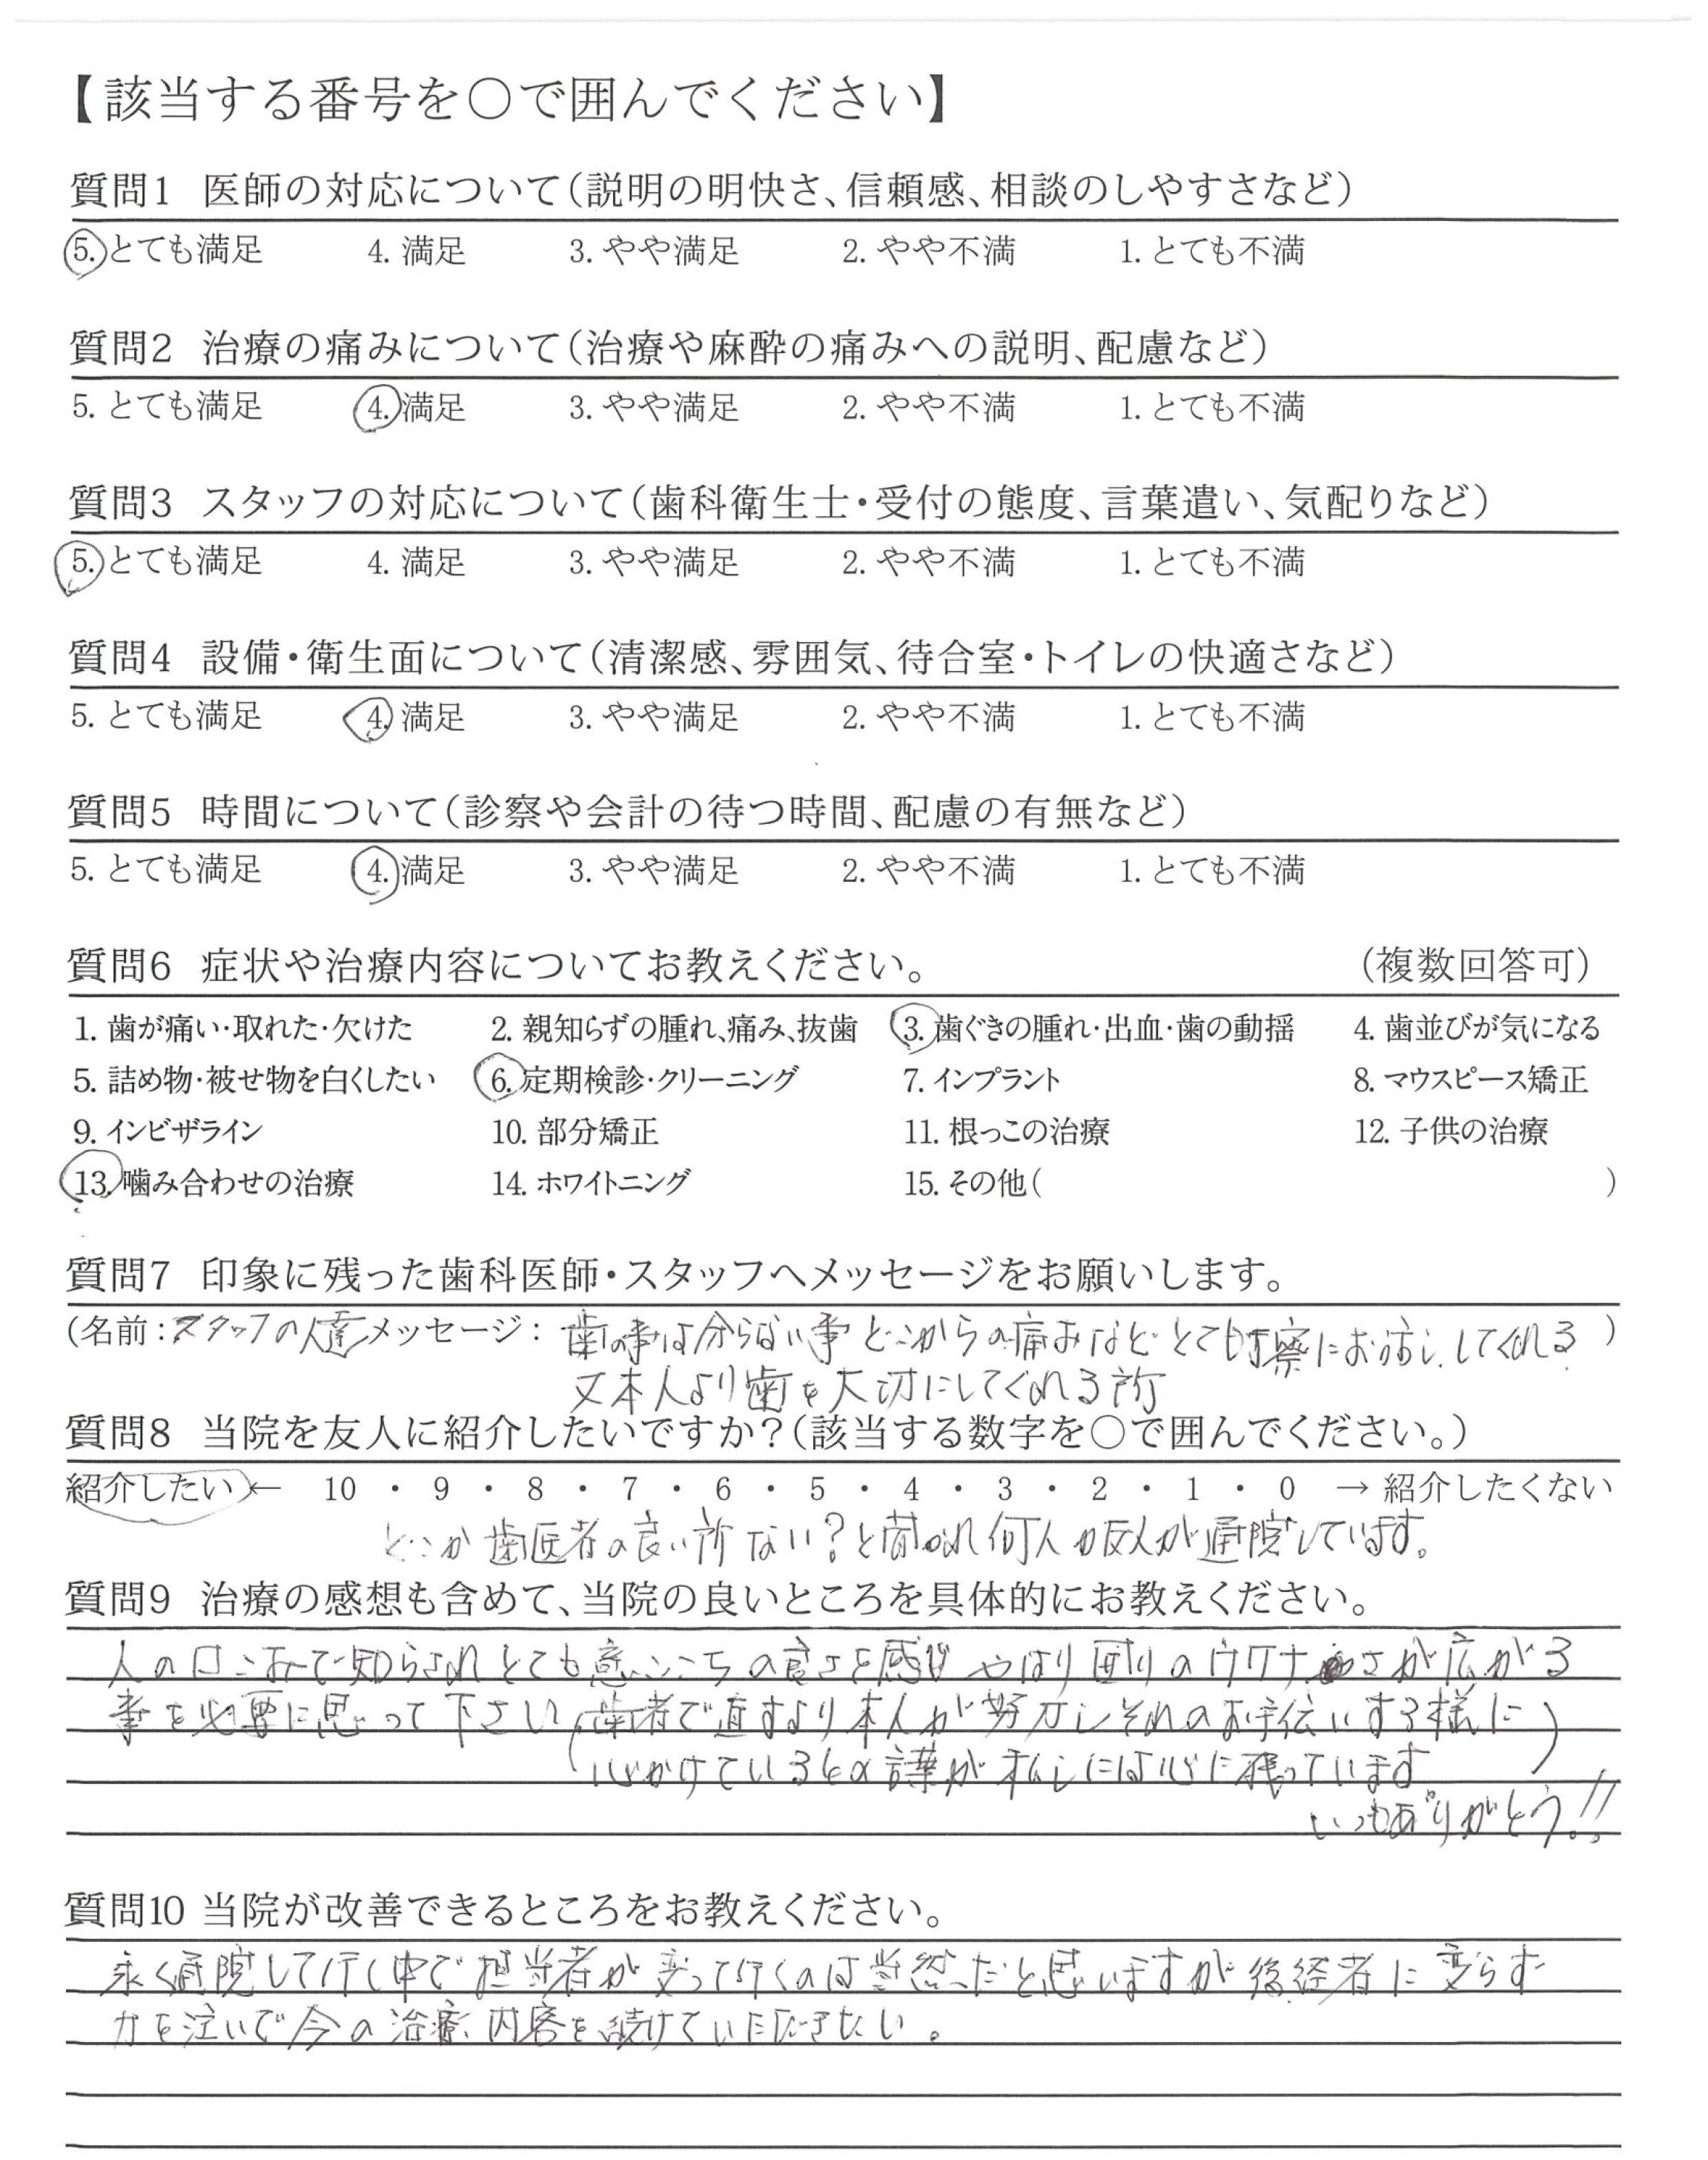 【該当する番号を○で囲んでください】
質問1 医師の対応について(説明の明快さ、信頼感、相談のしやすさなど)
5. とても満足 4. 満足 3. やや満足 2. やや不満 1. とても不満
質問2 治療の痛みについて(治療や麻酔の痛みへの説明、配慮など)
5. とても満足 4. 満足 3. やや満足 2. やや不満 1. とても不満
質問3 スタッフの対応について(歯科衛生士・受付の態度、言葉遣い、気配りなど)
5. とても満足 4. 満足 3. やや満足 2. やや不満 1. とても不満
質問4 設備・衛生面について(清潔感、雰囲気、待合室・トイレの快適さなど)
5. とても満足 4. 満足 3. やや満足 2. やや不満 1. とても不満
質問5 時間について(診察や会計の待つ時間、配慮の有無など)
5. とても満足 4. 満足 3. やや満足 2. やや不満 1. とても不満
質問6 症状や治療内容についてお教えください。 (複数回答可)
1. 歯が痛い・取れた・欠けた 2. 親知らずの腫れ、痛み、抜歯 3. 歯ぐきの腫れ・出血・歯の動揺 4. 歯並びが気になる
5. 詰め物・被せ物を白くしたい 6. 定期検診・クリーニング 7. インプラント 8. マウスピース矯正
9. インビザライン 10. 部分矯正 11. 根っこの治療 12. 子供の治療
13. 噛み合わせの治療 14. ホワイトニング 15. その他( )
質問7 印象に残った歯科医師・スタッフへメッセージをお願いします。
(名前:スタッフの人達 メッセージ: 歯の事は分らない事どこからの痛みなどとても 察にお してくれる )
又本人より歯を大切にしてくれる所
質問8 当院を友人に紹介したいですか?(該当する数字を○で囲んでください。)
紹介したい ← 10 ・ 9 ・ 8 ・ 7 ・ 6 ・ 5 ・ 4 ・ 3 ・ 2 ・ 1 ・ 0 → 紹介したくない
どこか歯医者の良い所ない?と聞かれ何人か友人が通院しています。
質問9 治療の感想も含めて、当院の良いところを具体的にお教えください。
人の口こみで知らされとても意ごこちの良さを感じやはり回りの さが広がる
事を必要に思って下さい(歯者で直すより本人が努力しそれのお手伝いする様に
心かけている 言葉が私しには心に残っています)
いつもありがとう!!
質問10 当院が改善できるところをお教えください。
永く通院して行く中で担当者が変って行くのは当然だと思いますが後経者に変らず
力を注いで今の治療内容を続けていただきたい。